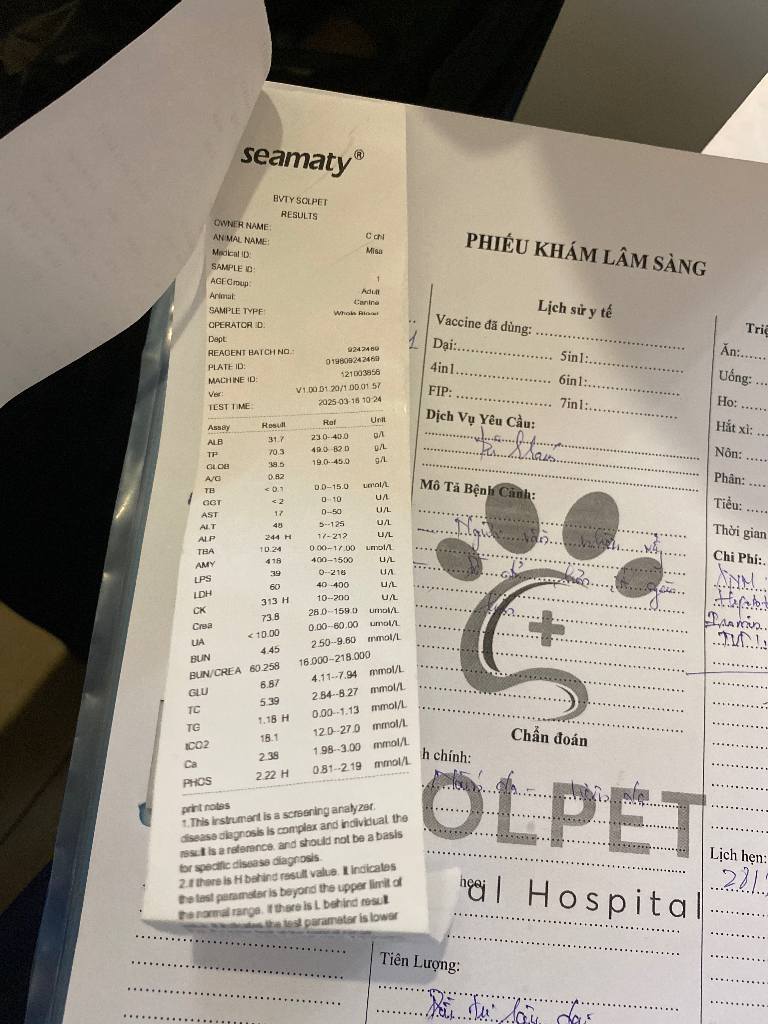 seamaty®
BVTY SOLPET
RESULTS
OWNER NAME: C chi
ANIMAL NAME: Misa
Medical ID:
SAMPLE ID: 1
AGEGroup: Adult
Animal: Canine
SAMPLE TYPE: Whole Blood
OPERATOR ID:
Dept:
REAGENT BATCH NO.: 9242469
PLATE ID: 019809242469
MACHINE ID: 121003856
Ver: V1.00.01.20/1.00.01.57
TEST TIME: 2025-03-16 10:24
Assay Result Ref Unit
ALB 31.7 23.0--40.0 g/L
TP 70.3 49.0--82.0 g/L
GLOB 38.5 19.0--45.0 g/L
A/G 0.82
TB < 0.1 0.0--15.0 umol/L
GGT < 2 0--10 U/L
AST 17 0--50 U/L
ALT 48 5--125 U/L
ALP 244 H 17--212 U/L
TBA 10.24 0.00--17.00 umol/L
AMY 418 400--1500 U/L
LPS 39 0--216 U/L
LDH 60 40--400 U/L
CK 313 H 10--200 U/L
Crea 73.8 28.0--159.0 umol/L
UA < 10.00 0.00--60.00 umol/L
BUN 4.45 2.50--9.60 mmol/L
BUN/CREA 60.258 16.000--218.000
GLU 6.87 4.11--7.94 mmol/L
TC 5.39 2.84--8.27 mmol/L
TG 1.18 H 0.00--1.13 mmol/L
tCO2 18.1 12.0--27.0 mmol/L
Ca 2.38 1.98--3.00 mmol/L
PHOS 2.22 H 0.81--2.19 mmol/L
print notes
1.This instrument is a screening analyzer.
disease diagnosis is complex and individual, the
result is a reference, and should not be a basis
for specific disease diagnosis.
2.If there is H behind result value. It indicates
the test parameter is beyond the upper limit of
the normal range. If there is L behind result
the test parameter is lower
PHIẾU KHÁM LÂM SÀNG
Lịch sử y tế
Vaccine đã dùng:
Dại: 5in1:
4in1 6in1:
FIP: 7in1:
Dịch Vụ Yêu Cầu:
Mô Tả Bệnh Cảnh:
Chẩn đoán
h chính:
OLPET
al Hospital
Tiên Lượng:
Triệ
Ăn:
Uống:
Ho:
Hắt xì:
Nôn:
Phân:
Tiểu:
Thời gian
Chi Phí:
Lịch hẹn: